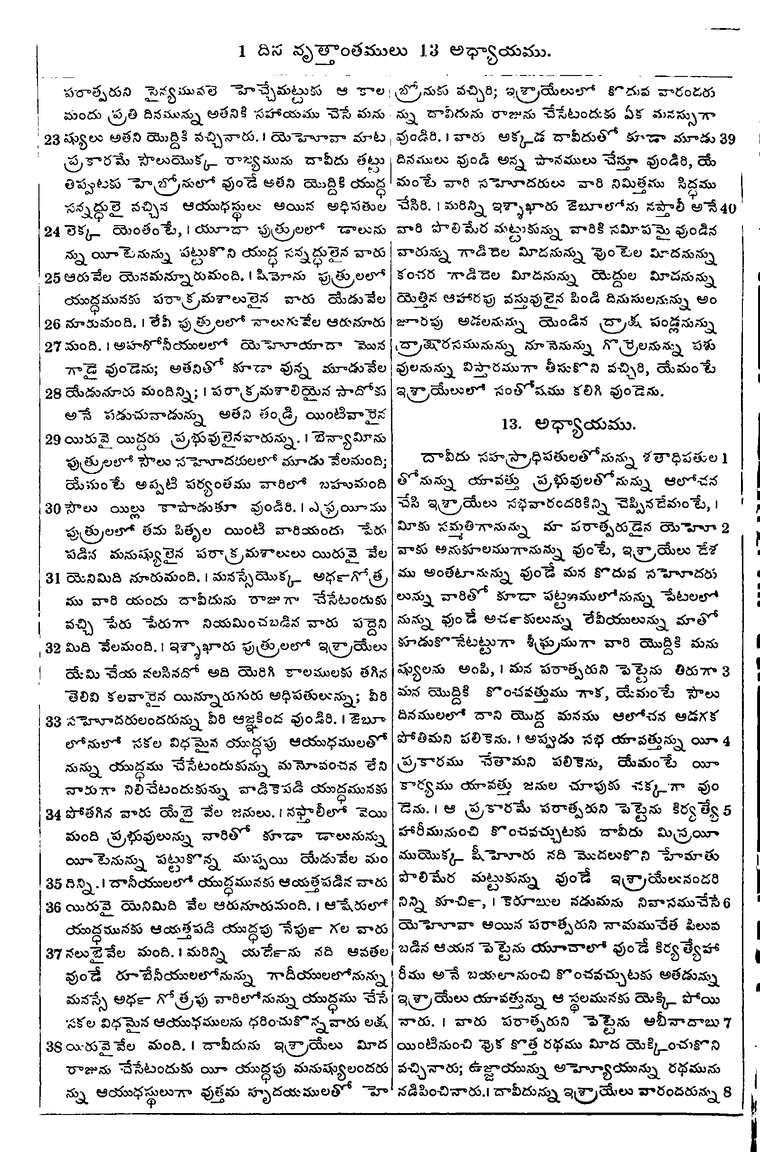 1 దిన వృత్తాంతములు 13 అధ్యాయము.
పరాత్పరుని సైన్యమువలె హెచ్చేమట్టుకు ఆ కాల
మందు ప్రతి దినమున్ను అతనికి సహాయము చేసే మను
23 ష్యులు అతని యొద్దికి వచ్చినారు. । యెహోవా మాట
ప్రకారమే సౌలుయొక్క రాజ్యమును దావీదు తట్టు
తిప్పుటకు హెబ్రోనులో వుండే అతని యొద్దికి యుద్ధ
సన్నద్ధులై వచ్చిన ఆయుధస్థులు అయిన అధిపతుల
24 లెక్క యెంతంటే, । యూదా పుత్రులలో డాలును
న్ను యీటెనున్ను పట్టుకొని యుద్ధ సన్నద్ధులైన వారు
25 ఆరువేల యెనమన్నూరుమంది. । షిమోను పుత్రులలో
యుద్ధమునకు పరాక్రమశాలులైన వారు యేడువేల
26 నూరుమంది. । లేవీ పుత్రులలో నాలుగువేల ఆరునూరు
27 మంది. । అహరోనీయులలో యెహోయాదా మొన
గాడై వుండెను; అతనితో కూడా వున్న మూడువేల
28 యేడునూరు మందిన్ని; । పరాక్రమశాలియైన సాదోకు
అనే పడుచువాడున్ను అతని తండ్రి యింటివారైన
29 యిరువై యిద్దరు ప్రభువులైనవారున్ను. । బెన్యామీను
పుత్రులలో సౌలు సహోదరులలో మూడు వేలమంది;
యేమంటే అప్పటి పర్యంతము వారిలో బహుమంది
30 సౌలు యిల్లు కాపాడుకూ వుండిరి. । ఎఫ్రయీము
పుత్రులలో తమ పితృల యింటి వారియందు పేరు
పడిన మనుష్యులైన పరాక్రమశాలులు యిరువై వేల
31 యెనిమిది నూరుమంది. । మనస్సేయొక్క అర్ధగోత్ర
ము వారి యందు దావీదును రాజుగా చేసేటందుకు
వచ్చి పేరు పేరుగా నియమించబడిన వారు పద్దెని
32 మిది వేలమంది. । ఇశ్శాఖారు పుత్రులలో ఇశ్రాయేలు
యేమి చేయ వలసినదో అది యెరిగి కాలములకు తగిన
తెలివి కలవారైన యిన్నూరుగురు అధిపతులున్ను; వీరి
33 సహోదరులందరున్ను వీరి ఆజ్ఞకింద వుండిరి. । జెబూ
లోనులో సకల విధమైన యుద్ధపు ఆయుధములతో
నున్ను యుద్ధము చేసేటందుకున్ను మహోవంచన లేని
వారుగా నిలిచేటందుకున్ను వాడికెపడి యుద్ధమునకు
34 పోతగిన వారు యేభై వేల జనులు. । నఫ్తాలీలో వెయి
మంది ప్రభువులున్ను వారితో కూడా డాలునున్ను
యీటెనున్ను పట్టుకొన్న ముప్పయి యేడువేల మం
35 దిన్ని. । దానీయులలో యుద్ధమునకు ఆయత్తపడిన వారు
36 యిరువై యెనిమిది వేల ఆరునూరుమంది. । ఆషేరులో
యుద్ధమునకు ఆయత్తపడి యుద్ధపు నేర్పు గల వారు
37 నలుభైవేల మంది. । మరిన్ని యర్దేను నది అవతల
వుండే రూబేనీయులలోనున్ను గాదీయులలోనున్ను
మనస్సే అర్ధ గోత్రపు వారిలోనున్ను యుద్ధము చేసే
సకల విధమైన ఆయుధములను ధరించుకొన్నవారు లక్ష
38 యిరువైవేల మంది. । దావీదును ఇశ్రాయేలు మీద
రాజును చేసేటందుకు యీ యుద్ధపు మనుష్యులందరు
న్ను ఆయుధస్థులుగా వుత్తమ హృదయములతో హె
బ్రోనుకు వచ్చిరి; ఇశ్రాయేలులో కొదువ వారందరు
న్ను దావీదును రాజును చేసేటందుకు ఏక మనస్సుగా
వుండిరి. । వారు అక్కడ దావీదుతో కూడా మూడు 39
దినములు వుండి అన్న పానములు చేస్తూ వుండిరి, యే
మంటే వారి సహోదరులు వారి నిమిత్తము సిద్ధము
చేసిరి. । మరిన్ని ఇశ్శాఖారు జెబూలోను నఫ్తాలీ అనే 40
వారి పొలిమేర మట్టుకున్ను వారికి సమీపమై వుండిన
వారున్ను గాడిదెల మీదనున్ను వొంటెల మీదనున్ను
కంచర గాడిదెల మీదనున్ను యెద్దుల మీదనున్ను
యెత్తిన ఆహారపు వస్తువులైన పిండి దినుసులనున్ను అం
జూరపు అడలనున్ను యెండిన ద్రాక్ష పండ్లనున్ను
ద్రాక్షారసమునున్ను నూనెనున్ను గొర్రెలనున్ను పశు
వులనున్ను విస్తారముగా తీసుకొని వచ్చిరి, యేమంటే
ఇశ్రాయేలులో సంతోషము కలిగి వుండెను.
13. అధ్యాయము.
దావీదు సహస్రాధిపతులతోనున్ను శతాధిపతుల 1
తోనున్ను యావత్తు ప్రభువులతోనున్ను ఆలోచన
చేసి ఇశ్రాయేలు సభవారందరికిన్ని చెప్పినదేమంటే, ।
మీకు సమ్మతిగానున్ను మా పరాత్పరుడైన యెహో 2
వాకు అనుకూలముగానున్ను వుంటే, ఇశ్రాయేలు దేశ
ము అంతటానున్ను వుండే మన కొదువ సహోదరు
లున్ను వారితో కూడా పట్టణములోనున్ను పేటలలో
నున్ను వుండే అర్చకులున్ను లేవీయులున్ను మాతో
కూడుకొనేటట్టుగా శీఘ్రముగా వారి యొద్దికి మను
ష్యులను అంపి, । మన పరాత్పరుని పెట్టెను తిరుగా 3
మన యొద్దికి కొంచవత్తుము గాక, యేమంటే సౌలు
దినములలో దాని యొద్ద మనము ఆలోచన అడగక
పోతిమని పలికెను. । అప్పుడు సభ యావత్తున్ను యీ 4
ప్రకారము చేతామని పలికెను, యేమంటే యీ
కార్యము యావత్తు జనుల చూపుకు చక్కగా వుం
డెను. । ఆ ప్రకారమే పరాత్పరుని పెట్టెను కిర్యత్యే 5
హారీమునుంచి కొంచవచ్చుటకు దావీదు మిస్రయీ
ముయొక్క షీహోరు నది మొదలుకొని హేమాతు
పొలిమేర మట్టుకున్ను వుండే ఇశ్రాయేలునందరి
నిన్ని కూర్చి, । కెరూబుల నడుమను నివాసముచేసే 6
యెహోవా అయిన పరాత్పరుని నామముచేత పిలువ
బడిన ఆయన పెట్టెను యూదాలో వుండే కిర్యత్యేహా
రీము అనే బయలానుంచి కొంచవచ్చుటకు అతడున్ను
ఇశ్రాయేలు యావత్తున్ను ఆ స్థలమునకు యెక్కి పోయి
నారు. । వారు పరాత్పరుని పెట్టెను అబీనాదాబు 7
యింటినుంచి వొక కొత్త రథము మీద యెక్కించుకొని
వచ్చినారు; ఉజ్జాయున్ను అహ్యోయున్ను రథమును
నడిపించినారు. । దావీదున్ను ఇశ్రాయేలు వారందరున్ను 8